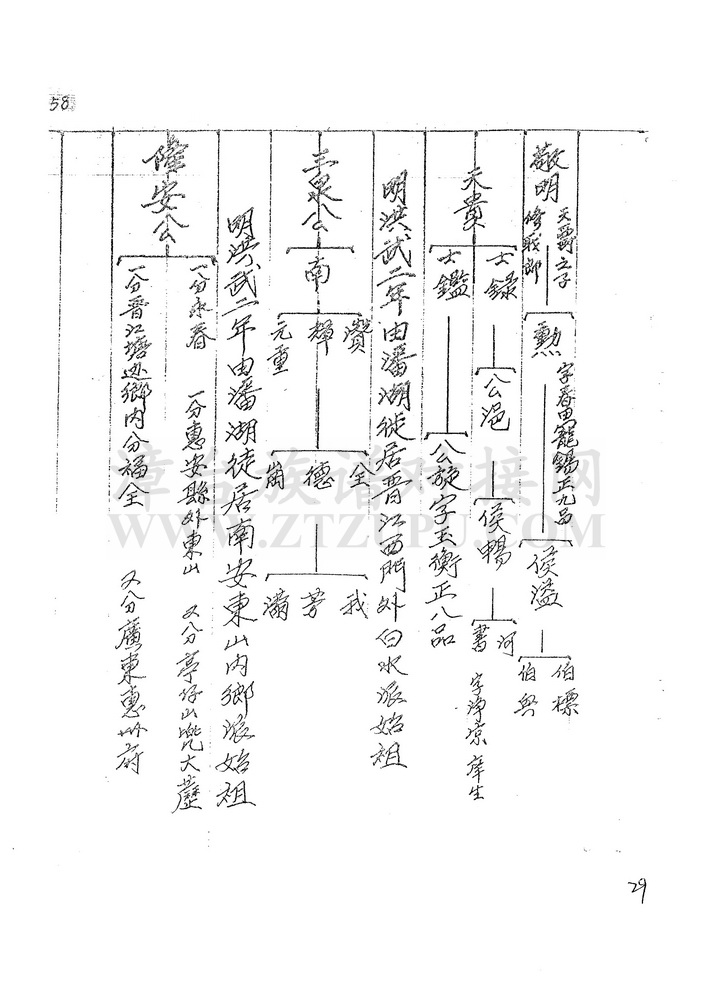 58
敬明
天爵之子
修戢郎
勲
字春思寵錫正九品
侯溢
伯標
伯與
天貴
士錄
公浥
侯暢
河
書
字淨宗庠生
士鑑
公旋字玉衡正八品
明洪武二年由潘湖徙居晋江西門外白水派始祖
三泉公
南
瓚
輝
元重
全
德
崗
我
芳
滿
明洪武二年由潘湖徙居南安東山內鄉派始祖
隆安公
一分永春 一分惠安縣外東山 又分亭仔山兜大
一分晋江塘边鄉内分福全 又分廣東惠州府
漳台族谱对接网
WWW.ZTZUPU.COM
29